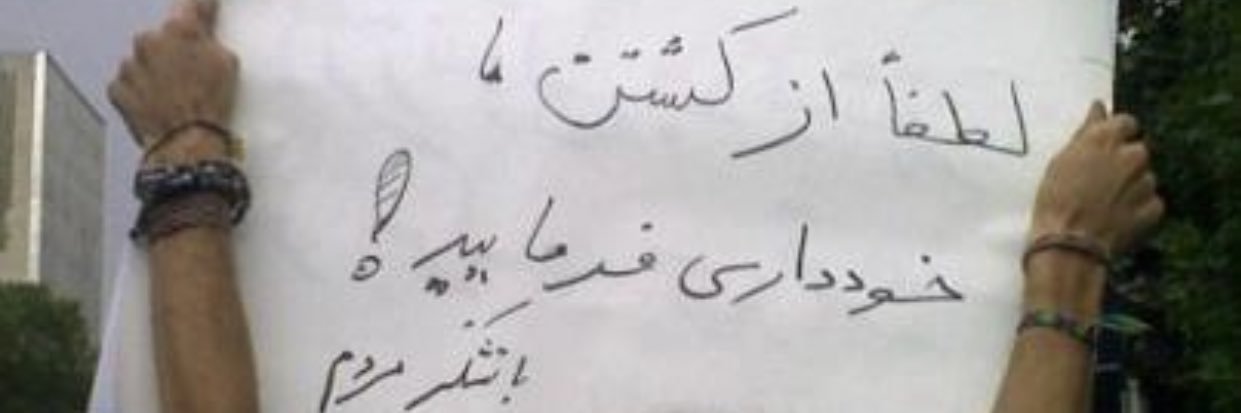 لطفاً از کشتن ما
خودداری فرمایید!
با تشکر مردم